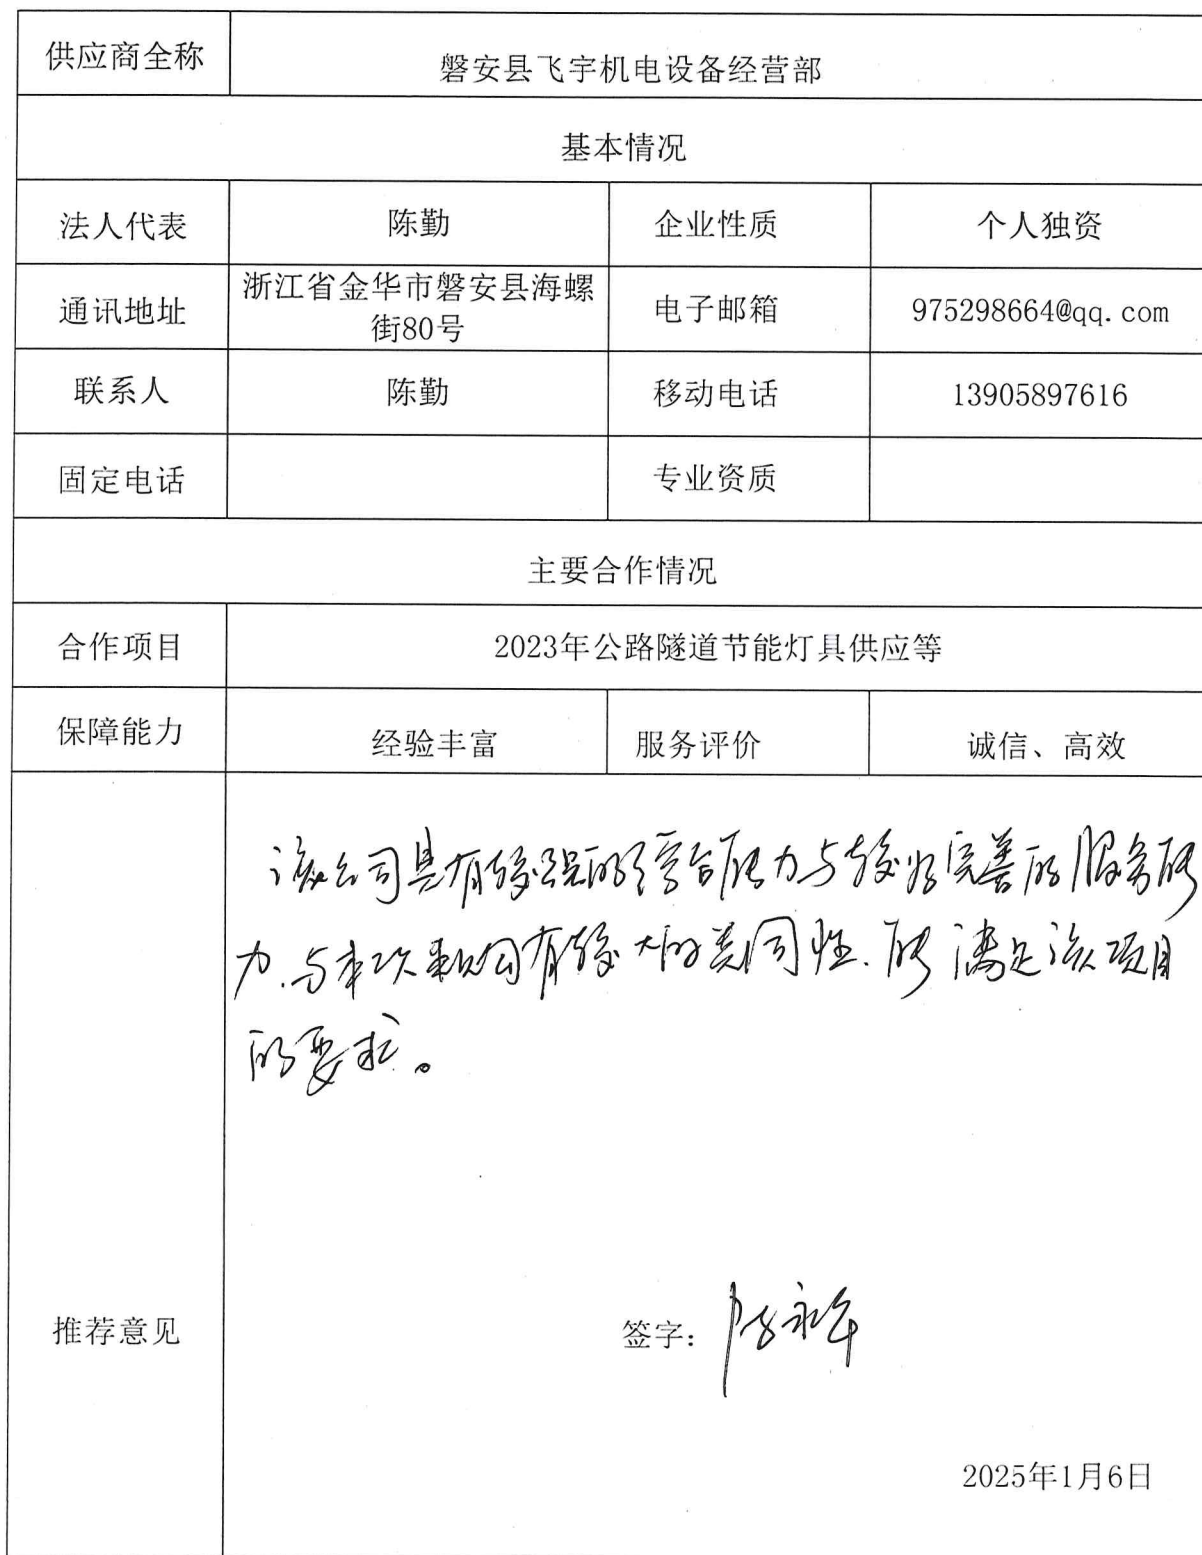 供应商全称 磐安县飞宇机电设备经营部
基本情况
法人代表 陈勤 企业性质 个人独资
通讯地址 浙江省金华市磐安县海螺街80号 电子邮箱 975298664@qq.com
联系人 陈勤 移动电话 13905897616
固定电话 专业资质
主要合作情况
合作项目 2023年公路隧道节能灯具供应等
保障能力 经验丰富 服务评价 诚信、高效
该公司具有较强的综合能力与较为完善的服务能
力.与本次采购有较大的类同性.能满足该项目
的要求。
推荐意见 签字:
2025年1月6日